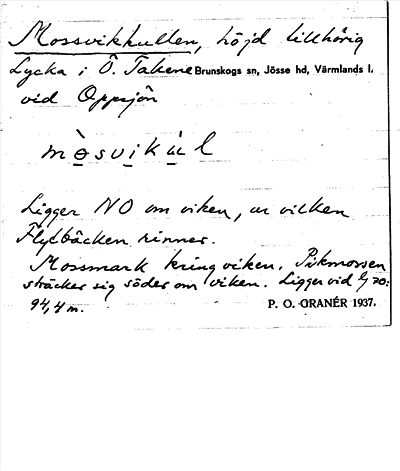 Mossvikkullen, höjd tillhörig
Lycka i Ö. Takene Brunskogs sn, Jösse hd, Värmlands l.
vid Oppsjön
mə̀sviku̇̀l
Ligger NO om viken, ur vilken
Flytbäcken rinner.
Mossmark kring viken. Pikmossen
sträcker sig söder om viken. Ligger vid
94,4 m.
P. O. GRANÉR 1937.